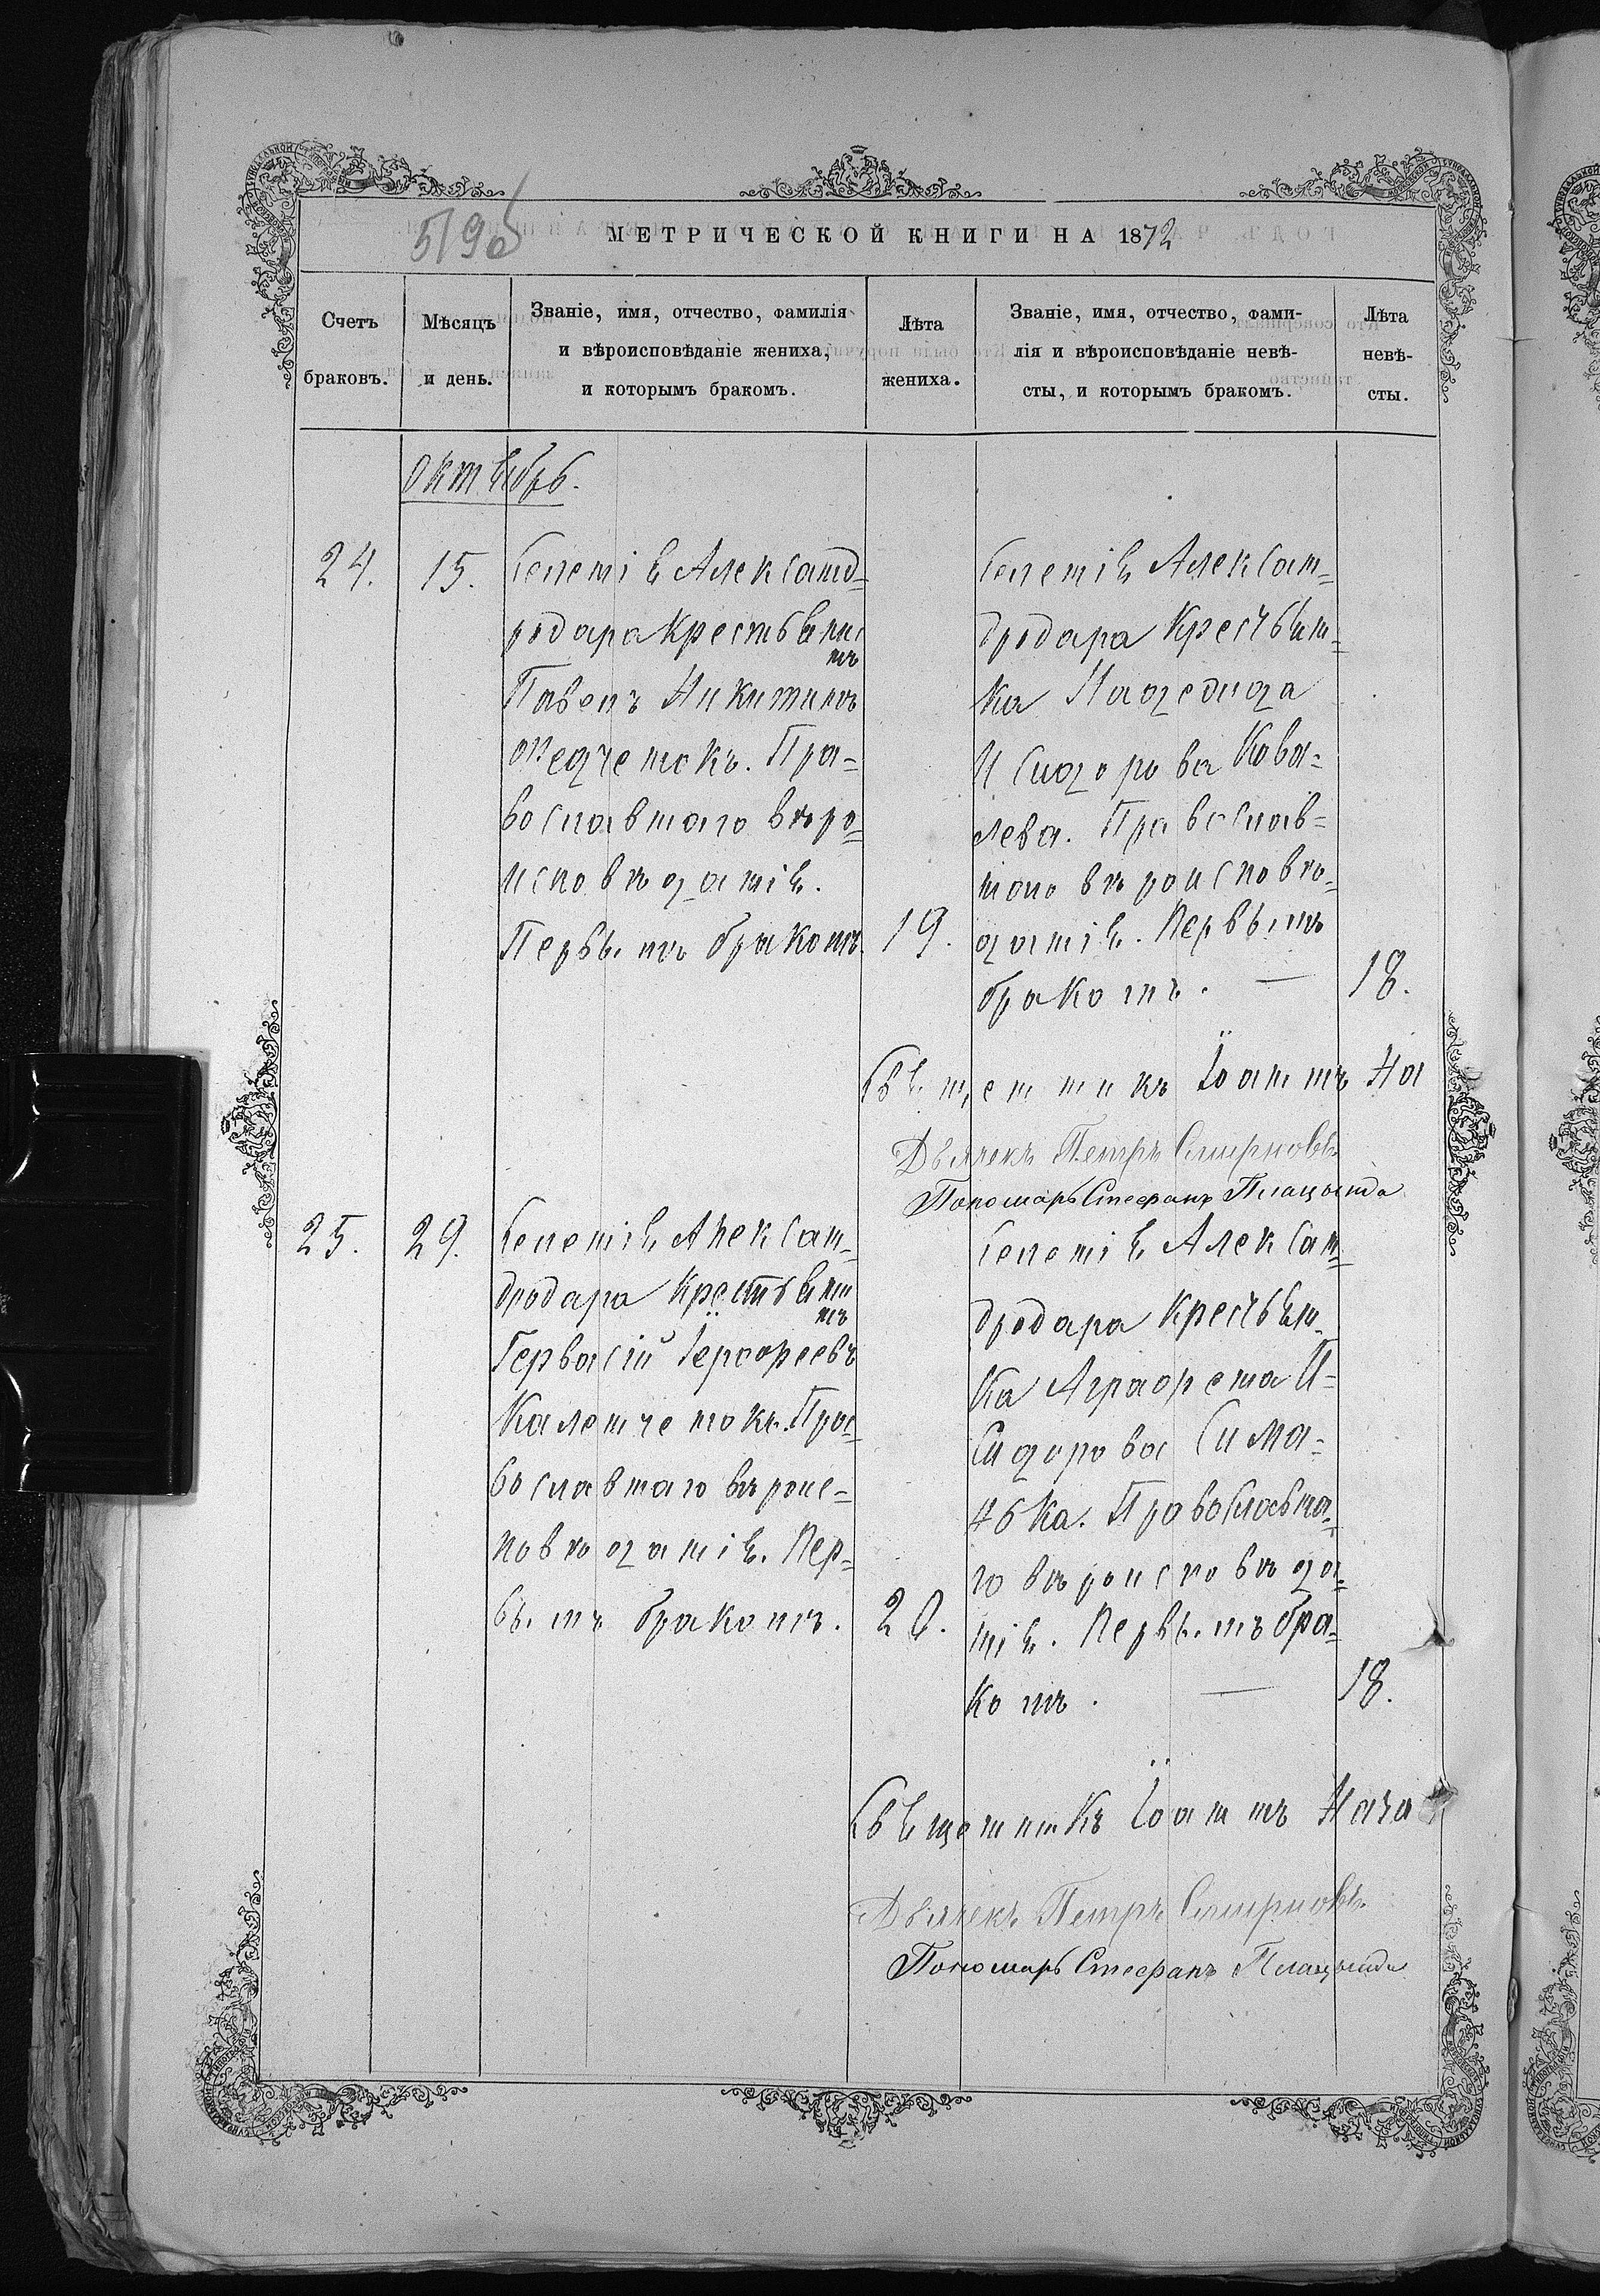 519об
МЕТРИЧЕСКОЙ КНИГИ НА 1872
Счетъ браковъ.
Мѣсяцъ и день.
Званіе, имя, отчество, фамилія
и вѣроисповѣданіе жениха,
и которымъ бракомъ.
Лѣта
жениха.
Званіе, имя, отчество, фами-
лія и вѣроисповѣданіе невѣ-
сты, и которымъ бракомъ.
Лѣта
невѣ-
сты.
Октябрь.
24.
15.
Селенія Александ-
родара Крестьянин
нъ
Павелъ Никитинъ
Пра-
вославнаго вѣро-
исповѣданія.
Первымъ бракомъ.
19.
Селенія Алексан-
дродара Крестьян-
ка Надежда
Исидорова Кова-
лева. Православ-
наго вѣроисповѣ-
данія. Первымъ
бракомъ. —
18.
Священникъ Іоаннъ На
Дьячекъ Петръ Смирновъ
Пономарь Стефанъ Плацында
25.
29.
Селенія Алексан-
дродара Крестьяни
нъ
Гервасій Іерофеевъ
Каленченокъ. Пра-
вославнаго вѣроис-
повѣданія. Пер-
вымъ бракомъ.
20.
Селенія Алексан-
дродара Крестьян-
ка Аграфена И-
сидорова Сима-
чька. Православна-
го вѣроисповѣда-
нія. Первымъ бра-
комъ. —
18.
Священникъ Іоаннъ Нага
Дьячекъ Петръ Смирновъ
Пономарь Стефанъ Плацында